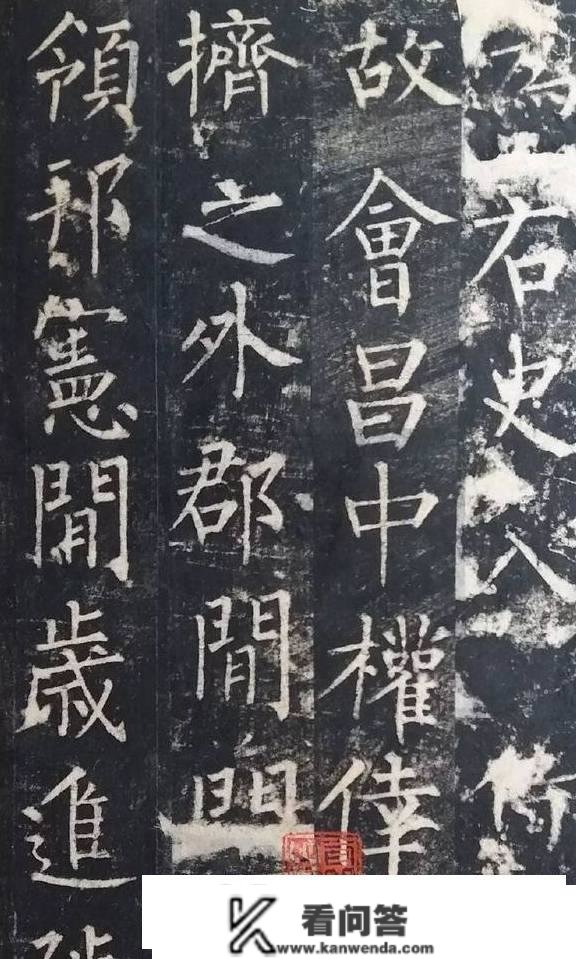 右史
故會昌中權倖
擠之外郡閒
領邦憲閒歲進
看问答
www.kanwenda.com